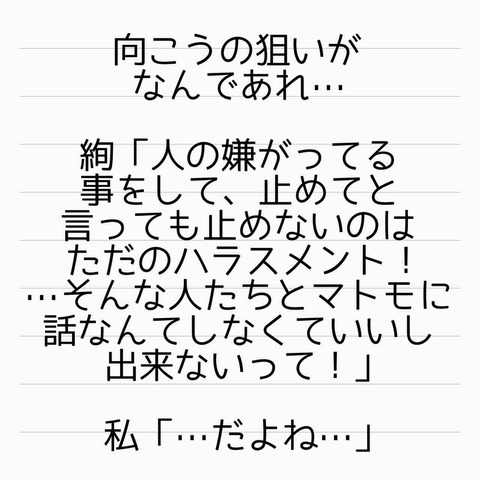 向こうの狙いが
なんであれ…
絢「人の嫌がってる
事をして、止めてと
言っても止めないのは
ただのハラスメント！
…そんな人たちとマトモに
話なんてしなくていいし
出来ないって！」
私「…だよね…」